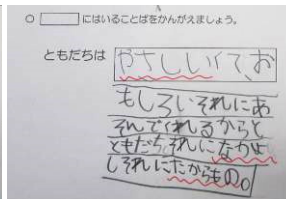 ○ □にはいることばをかんがえましょう。
ともだちは やさしいくて、お
もしろいそれにあ
そんでくれるからと
ともだち。それになかよ
しそれにたからもの。